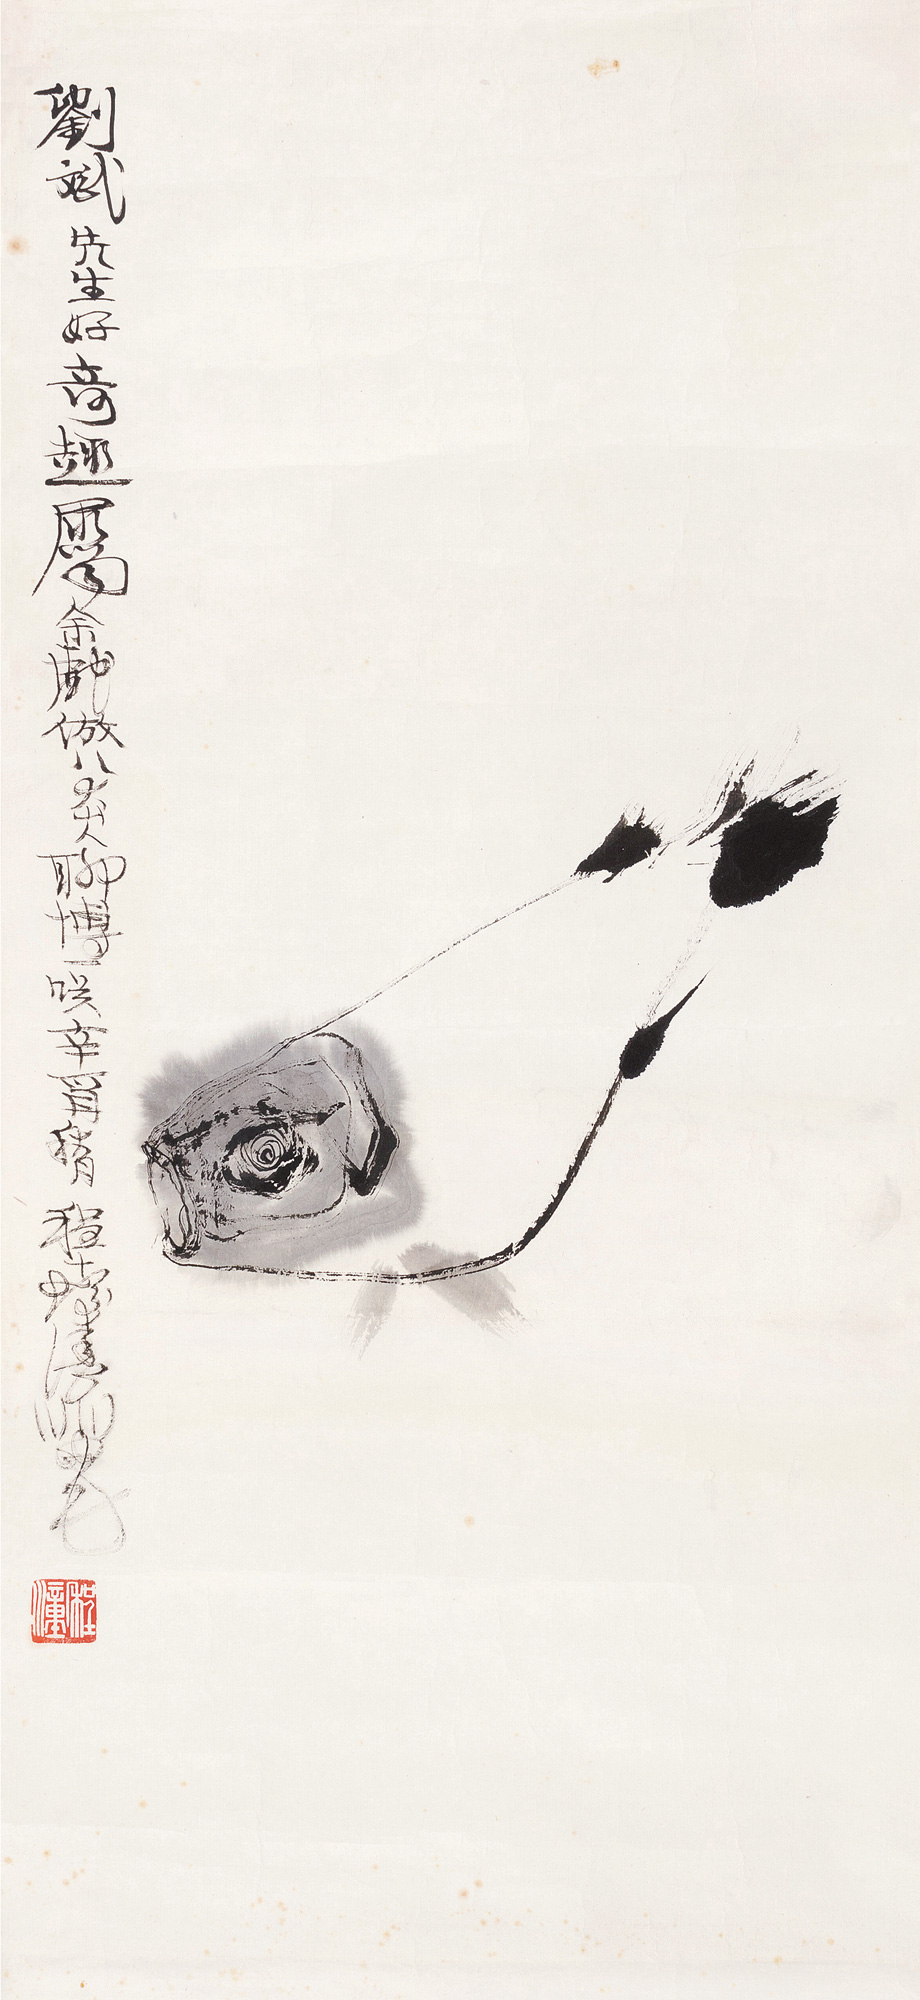 劉斌先生好奇趣屬余戲倣八大人聊博一咲辛酉程十髮
程潼